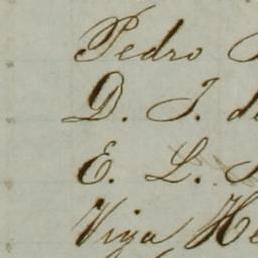 Pedro
D. J. de
E. L.
Viga He